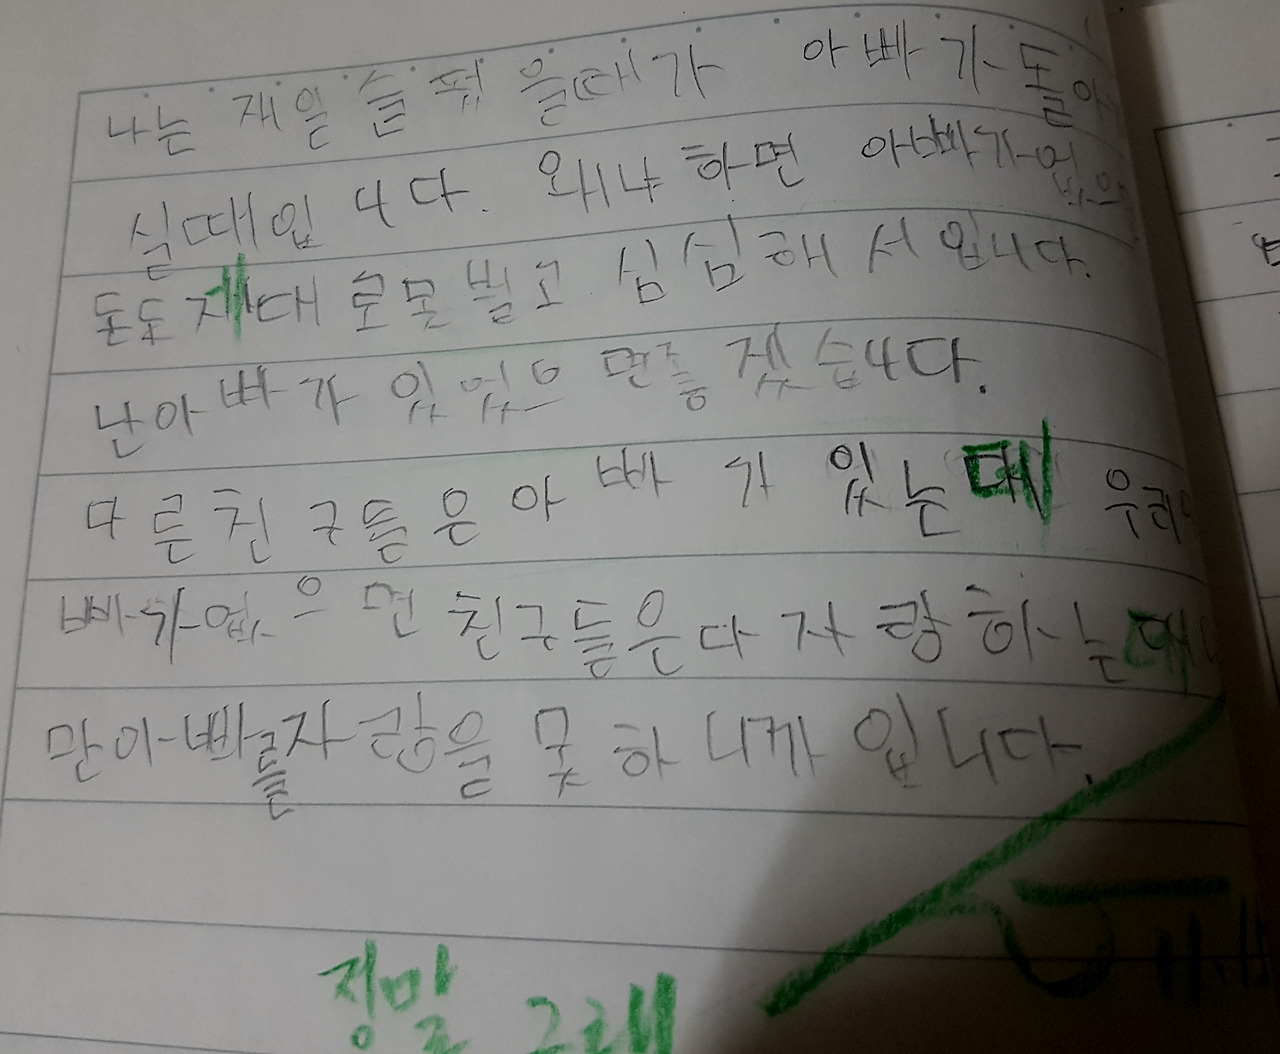 나는 재일 슬펐을때가 아빠가돌아
실때입니다. 왜냐하면 아빠가없으
돈도제대로못벌고 심심해서입니다.
난아빠가 있었으면좋겠습니다.
다른친구들은아빠가 있는데 우리
빠가없으면 친구들은다자랑하는데
만아빠를자랑을 못하니까입니다.
정말 그래